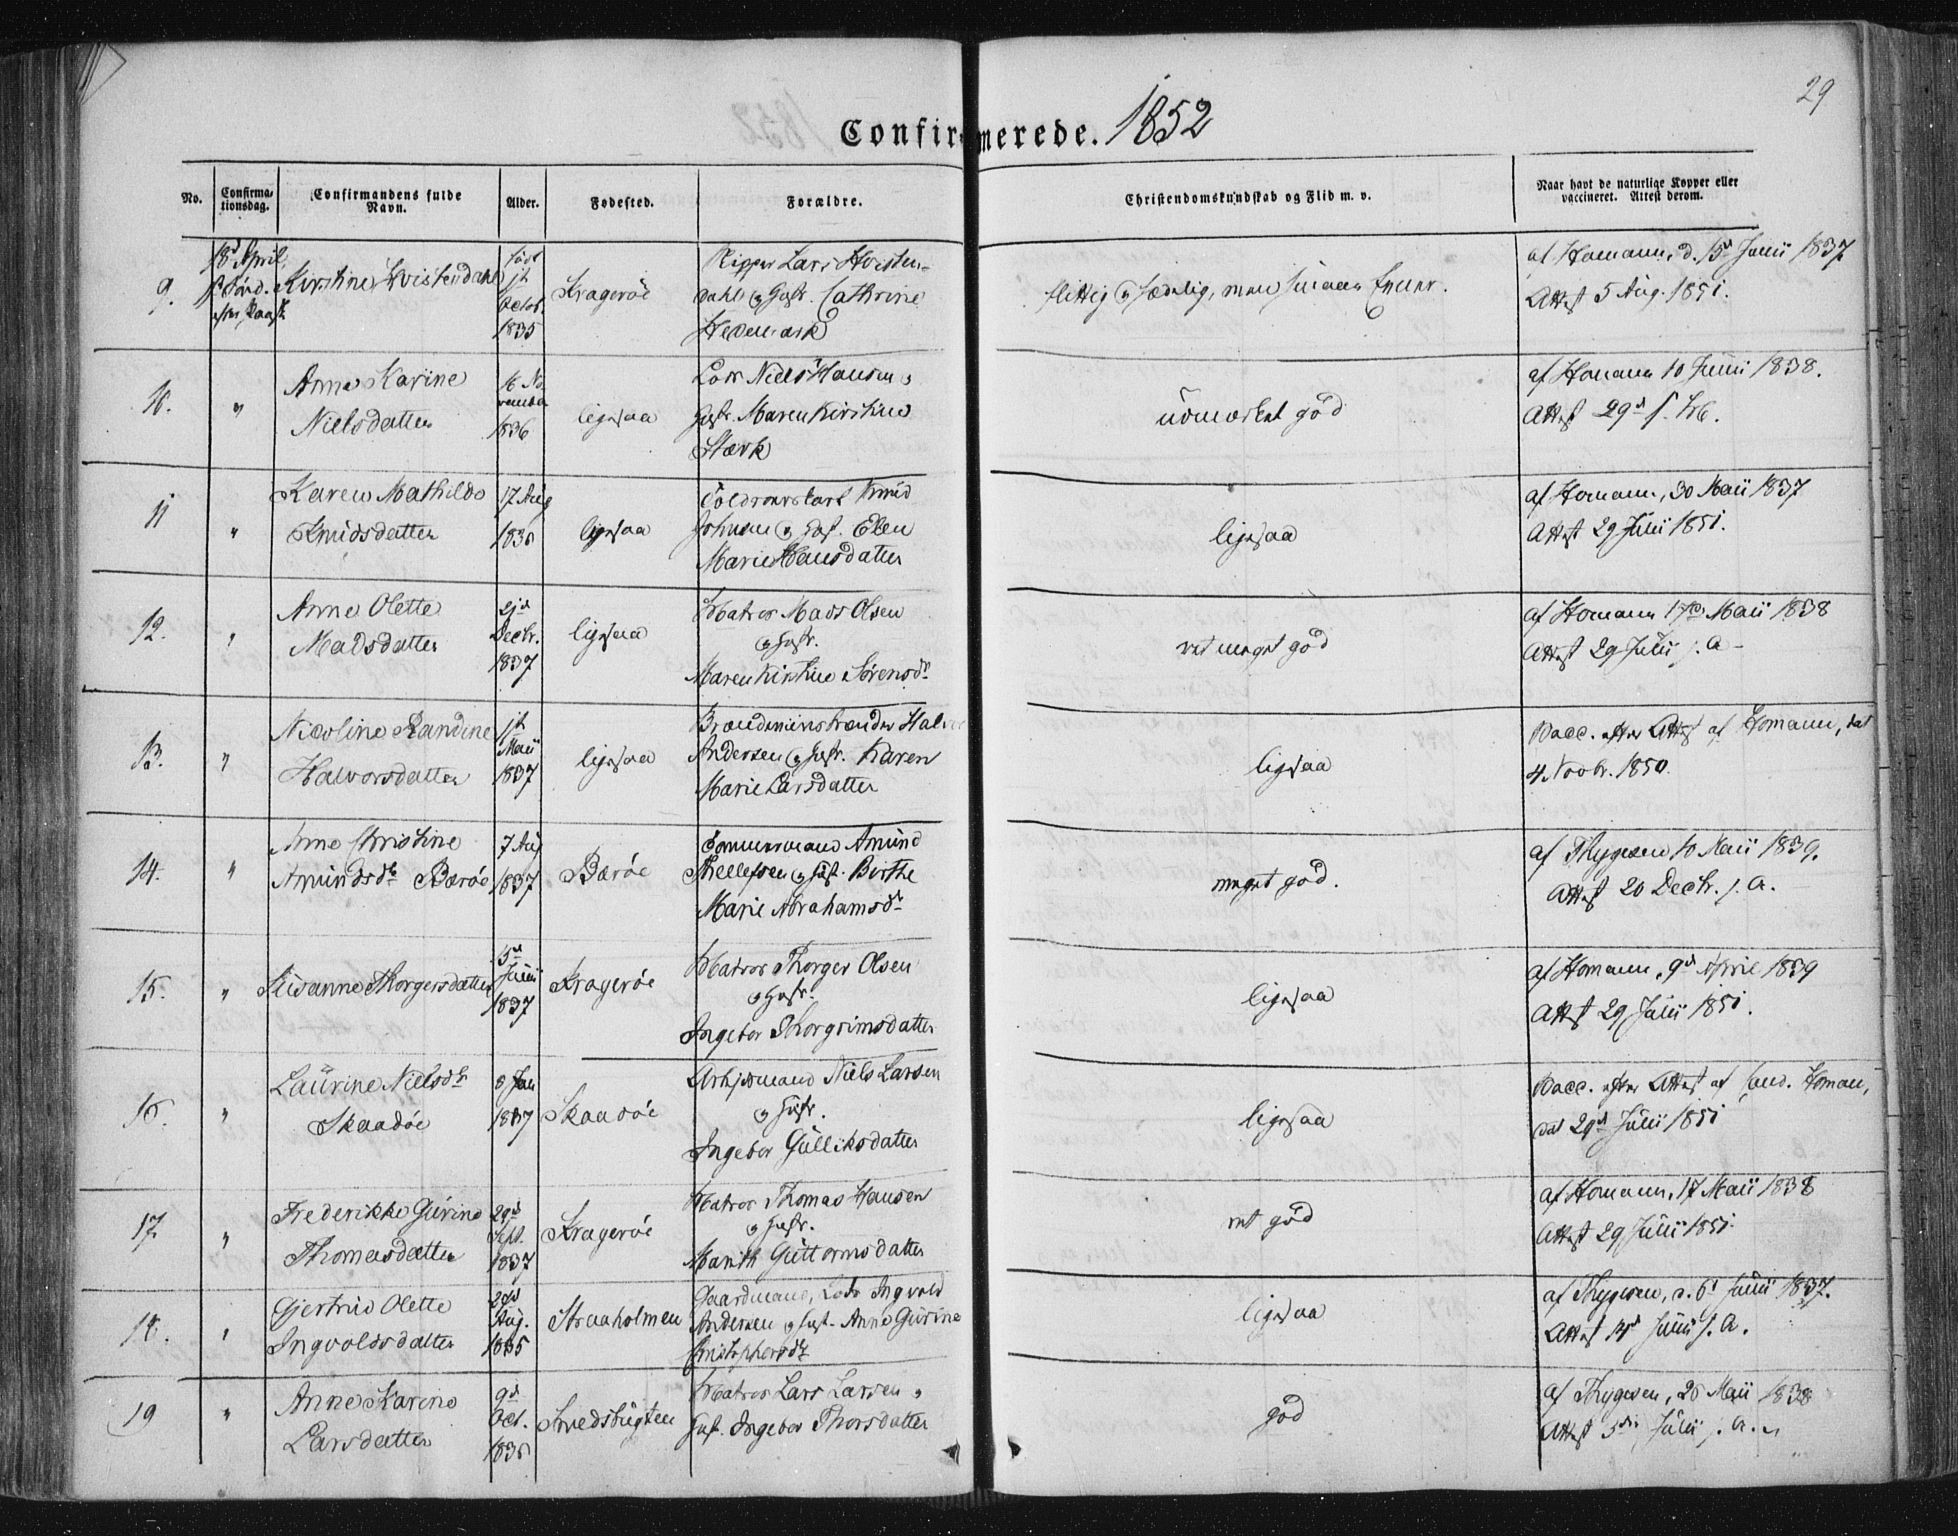 29
Confirmerede. 1852
No.
Confirma-
tionsdag.
Confirmandens fulde
Navn.
Alder.
Fødested.
Forældre.
Christendomskundskab og Flid m. v.
Naar havt de naturlige Kopper eller
vaccineret. Attest derom.
9.
18d April,
Kirstine Hvistendahl
født
Octobr.
1835
Kragerøe
Lars Hvisten-
dahl og Hustr. Cathrine
Hedemark
flittig og sædelig, men
af Homann, d. 15d Junii 1837
Attest 5 Aug. 1851.
10.
"
Anne Karine
Nielsdatter
16 No-
vember
1836
ligesaa
Lods Niels Hansen,
Hustr. Maren Kirstine
Stærk
udmærket god
af Homann 10 Junii 1838.
Attest 29d
11
"
Karen Mathilde
Knudsdatter
17 Aug
1836
ligesaa
Knud
Johnsen og Hust. Elen
Marie Hansdatter
ligesaa
af Homann, 30 Maii 1837
Attest 29 Julii 1851.
12.
"
Anne Olette
Madsdatter
21d
Decbr.
1837
ligesaa
Matros Mads Olsen
og Hustr.
Maren Kirstine Sörensdr
ret meget god
af Homann 17d Maii 1838
Attest 29 Julii s. A.
13.
"
Nicoline Randine
Halvorsdatter
1st
Maii
1837
ligesaa
Brændeviinsbrænder Halvor
Andersen og Hustr. Karen
Marie Larsdatter
ligesaa
Vacc. efter Attest af Homann, dat
4 Novbr. 1850.
14.
"
Anne Christine
Amundsdr Bærøe
7 Aug
1837
Bærøe
Tømmermand Amund
Thellefsen og Hust. Birthe
Marie Abrahamsdr
meget god.
af Thygesen 10 Maii 1839.
Attest 20 Decbr. s. A.
15.
"
Susanne Thorgersdatter
5d
Junii
1837
Kragerøe
Matros Thorger Olsen
og Hustr.
Ingebor Thorgrimsdatter
ligesaa
af Homann, 9d April 1839
Attest 29 Julii 1851.
16.
"
Laurine Nielsdr
Skaadøe
8 Jan
1837
Skaadøe
Arbjdsmand Niels Larsen
og Hustr.
Ingebor Gulliksdatter
ligesaa
Vacc. efter Attest af Cand. Homan,
dat 29d Julii 1851
17.
"
Frederikke Gurine
Thomasdatter
29d
Sept.
1837
Kragerøe
Matros Thomas Hansen
og Hustr.
Marith Guttormsdatter
ret god
af Homann, 17 Maii 1838
Attest 29 Julii 1851.
18.
"
Gjertrud Olette
Ingvoldsdatter
Aug.
1835
Straaholmen
Gaardmand, Lods Ingvold
Andersen og Hust. Anne Gurine
Christophersdr
ligesaa
af Thygesen, d. 6t Junii 1837.
Attest 14d Junii s. A.
19
"
Anne Karine
Larsdatter
9d
Oct.
1836
Smedsbugten
Matros Lars Larsen,
Hust. Ingebor Thorsdatter
god
af Thygesen, 26 Maii 1838
Attest 5 Julii s. A.